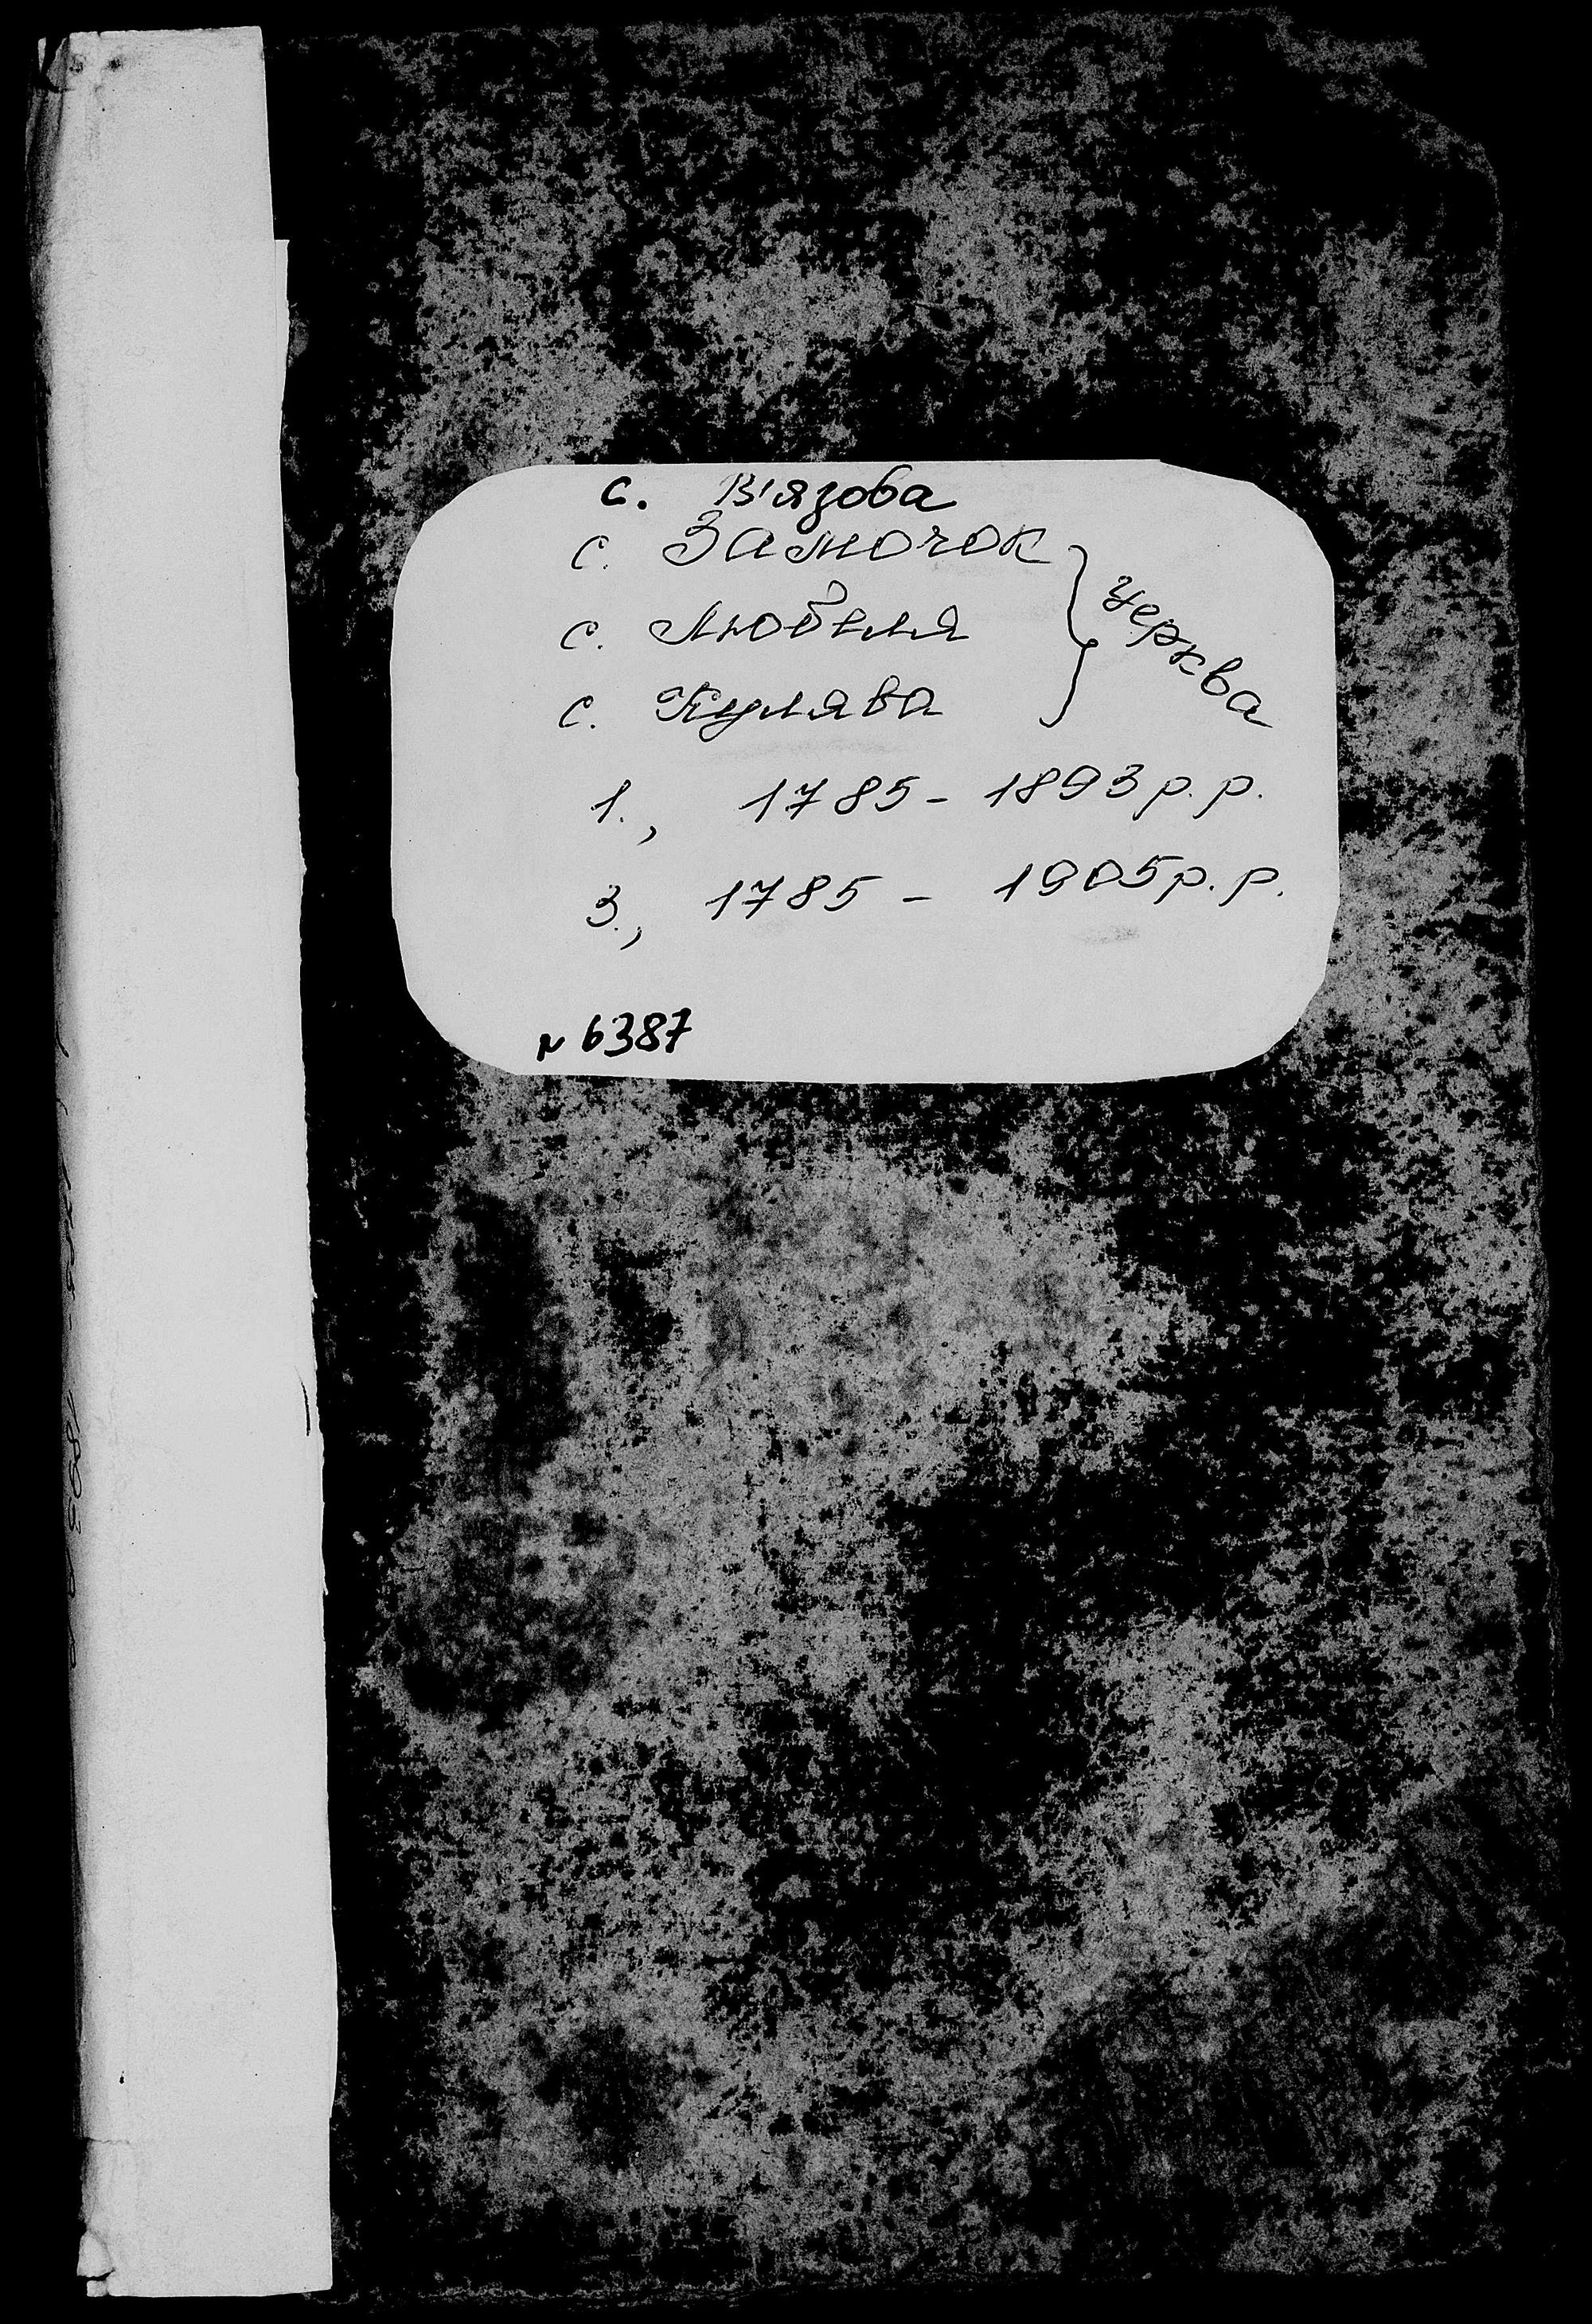 с. В'язова
с. Замочок
с. Любеля
с. Кулява
церква
1., 1785 - 1893 р.р.
3., 1785 - 1905 р.р.
№ 6387